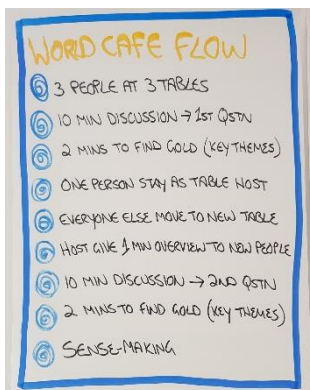 WORLD CAFE FLOW
3 PEOPLE AT 3 TABLES
10 MIN DISCUSSION → 1ST QSTN
2 MINS TO FIND GOLD (KEY THEMES)
ONE PERSON STAY AS TABLE HOST
EVERYONE ELSE MOVE TO NEW TABLE
HOST GIVE 1 MIN OVERVIEW TO NEW PEOPLE
10 MIN DISCUSSION → 2ND QSTN
2 MINS TO FIND GOLD (KEY THEMES)
SENSE-MAKING